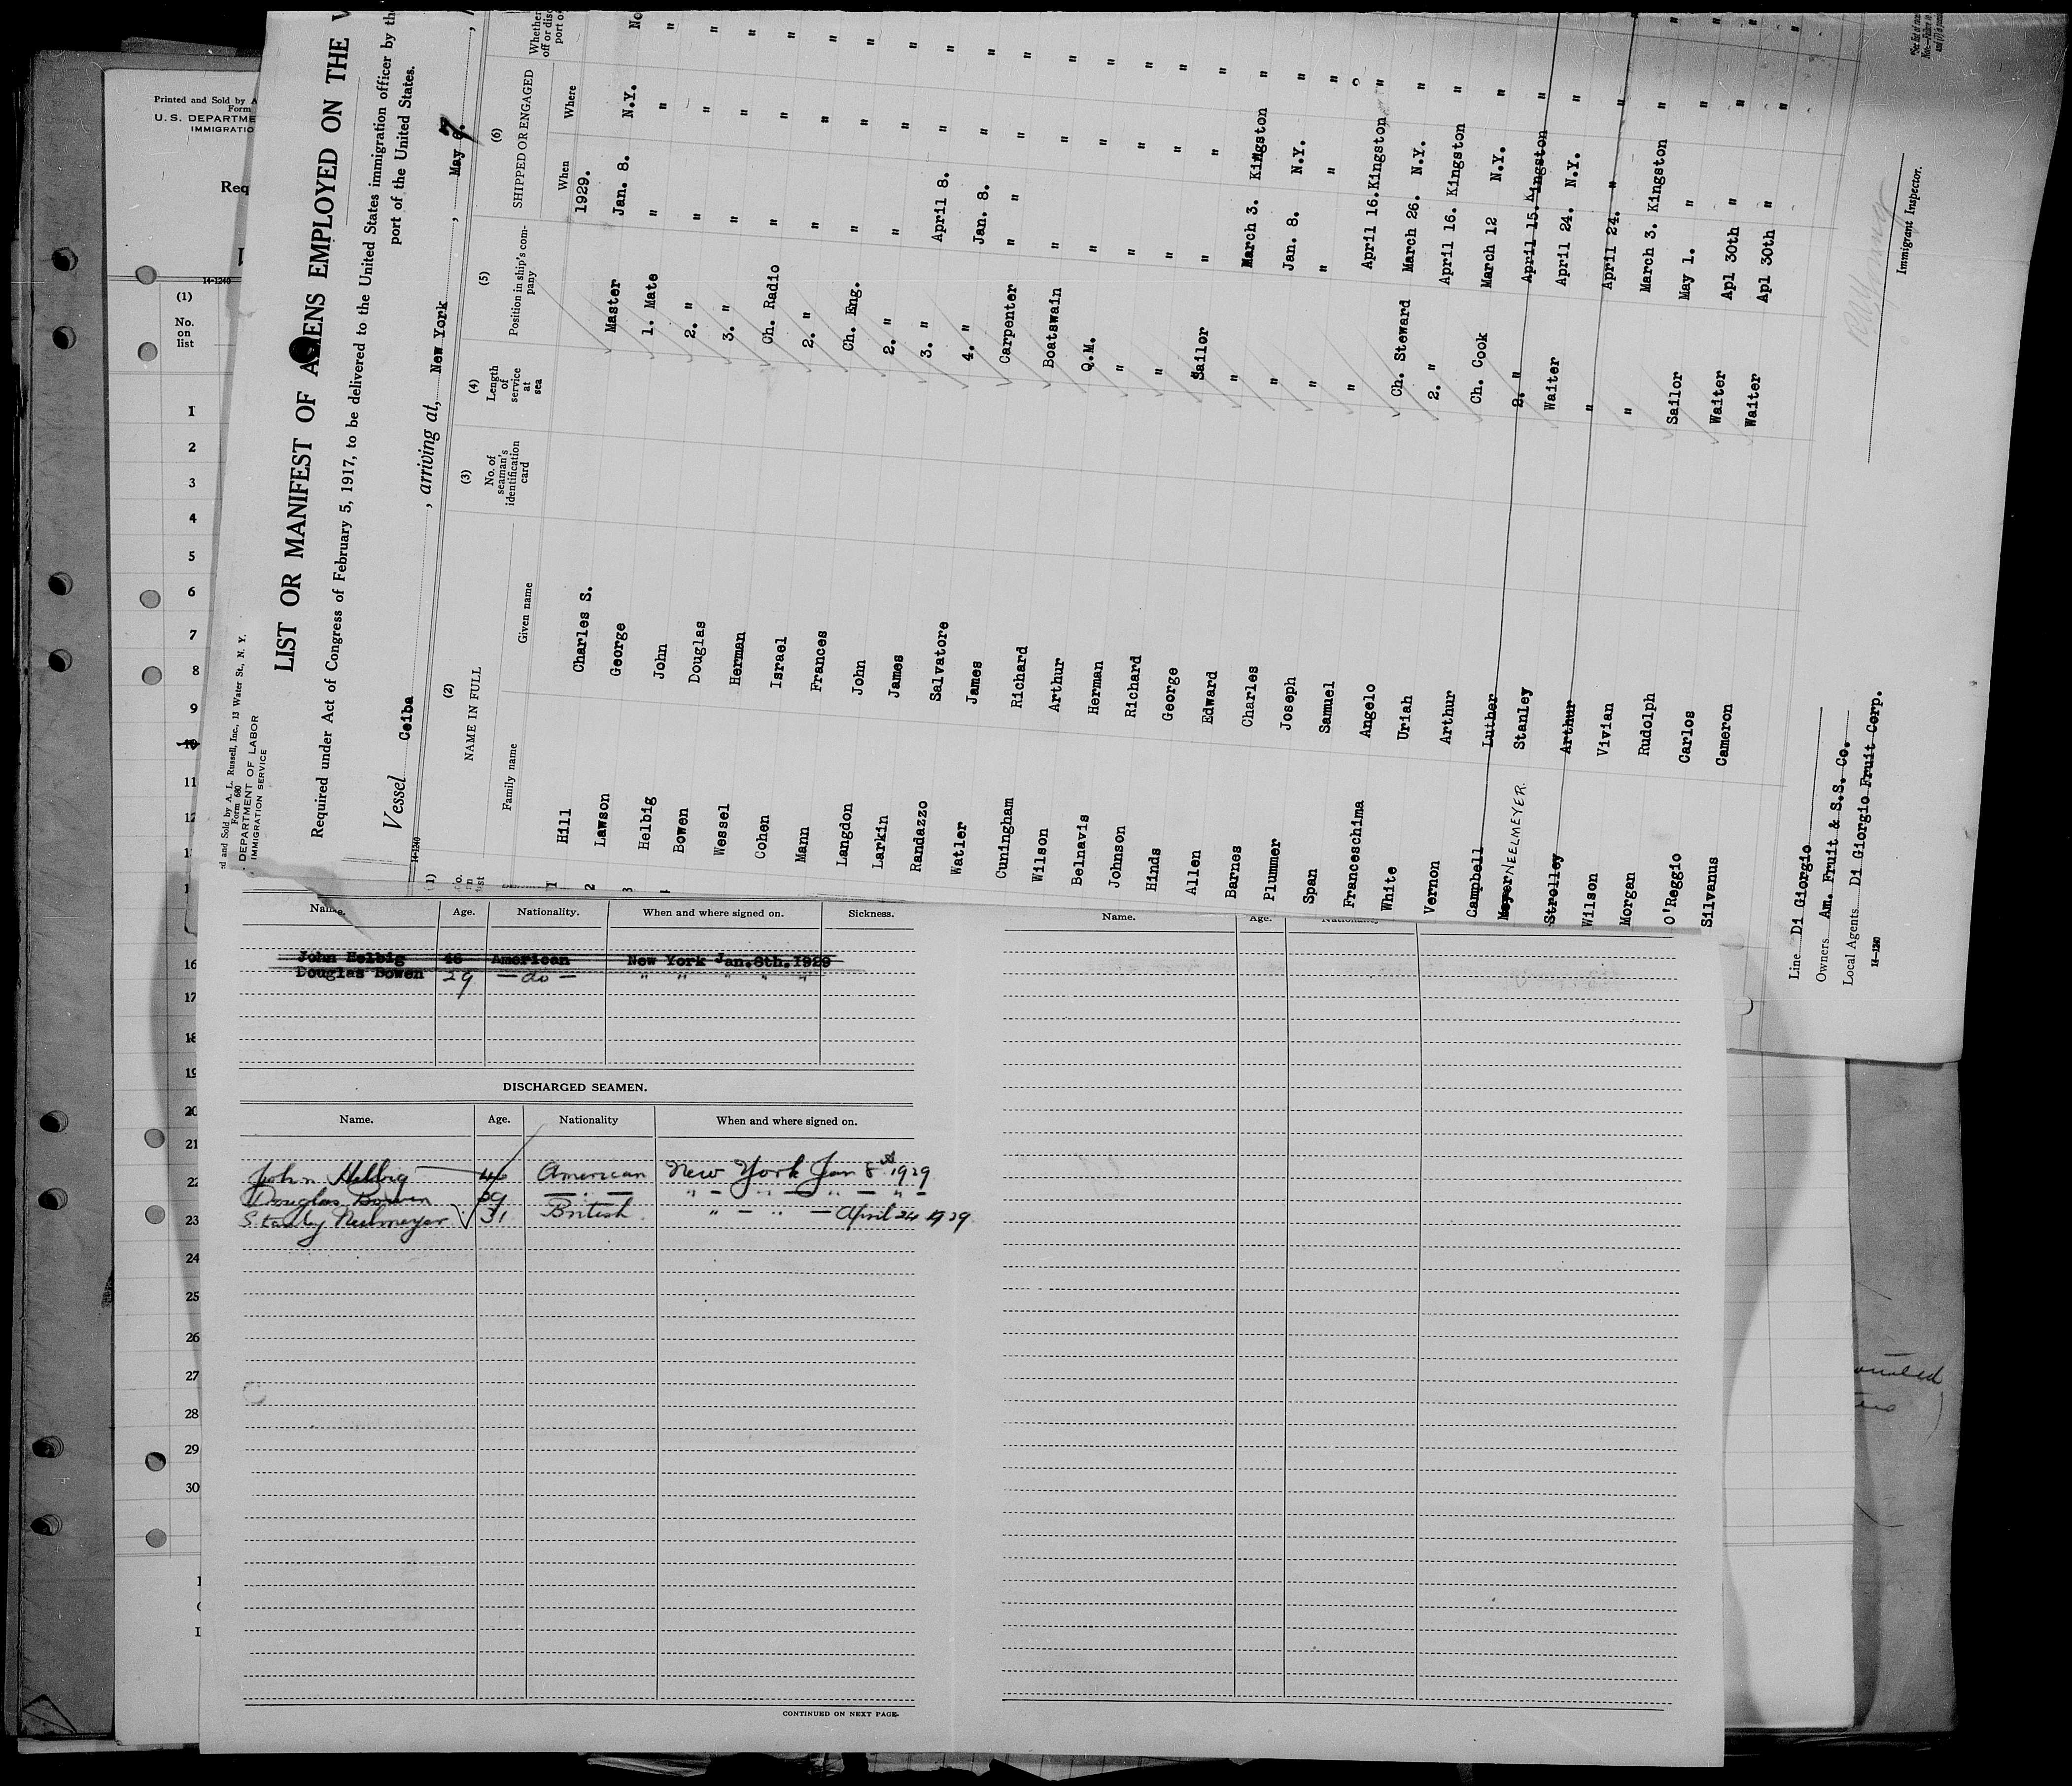 Printed and Sold by A
Form
U. S. DEPARTME
IMMIGRATIO
Req
14-1240
(1)
No.
on
list
1
2
3
4
5
6
7
8
9
10
11
12
16
17
18
19
20
21
22
23
24
25
26
27
28
29
30
and Sold by A. L. Russell, Inc., 13 Water St., N. Y.
Form 680
DEPARTMENT OF LABOR
IMMIGRATION SERVICE
LIST OR MANIFEST OF ALIENS EMPLOYED ON THE V
Required under Act of Congress of February 5, 1917, to be delivered to the United States immigration officer by the
port of the United States.
Vessel Ceiba , arriving at, New York , May 6. 7
14-1240
(1) (2) (3) (4) (5) (6)
NAME IN FULL
Family name Given name
No. of seaman's identification card
Length of service at sea
Position in ship's company
SHIPPED OR ENGAGED
When Where
1929.
Hill Charles S. Master Jan. 8. N.Y. No
Lawson George 1. Mate " " "
Helbig John 2. " " " "
Bowen Douglas 3. " " " "
Wessel Herman Ch. Radio " " "
Cohen Israel 2. " " " "
Mann Frances Ch. Eng. " " "
Langdon John 2. " " " "
Larkin James 3. " April 8. " "
Randazzo Salvatore 4. " Jan. 8. " "
Watler James Carpenter " " "
Cuningham Richard Boatswain " " "
Wilson Arthur Q.M. " " "
Belnavis Herman " " " "
Johnson Richard " " " "
Hinds George Sailor " " "
Allen Edward " March 3. Kingston "
Barnes Charles " Jan. 8. N.Y. "
Plummer Joseph " " " "
Span Samuel " April 16. Kingston "
Franceschima Angelo Ch. Steward March 26. N.Y. "
White Uriah 2. " April 16. Kingston "
Vernon Arthur Ch. Cook March 12 N.Y. "
Campbell Luther 2. " April 15. Kingston "
Meyer NEELMEYER Stanley Waiter April 24. N.Y. "
Strolley Arthur " April 24. " "
Wilson Vivian " March 3. Kingston "
Morgan Rudolph Sailor May 1. " "
O'Reggio Carlos Waiter Apl 30th " "
Silvanus Cameron Waiter Apl 30th " "
Line Di Giorgio
Owners Am. Fruit & S.S. Co.
Local Agents Di Giorgio Fruit Corp.
14-1240
Immigrant Inspector.
Name. Age. Nationality. When and where signed on. Sickness.
John Helbig 46 American New York Jan. 8th. 1929
Douglas Bowen 29 — do — " " " " "
DISCHARGED SEAMEN.
Name. Age. Nationality When and where signed on.
John Helbig 46 American New York Jan 8th 1929
Douglas Bowen 29 — " — " — " — " — " —
Stanley Neelmeyer 31 British " — " — April 24 1929
CONTINUED ON NEXT PAGE.
Name. Age. Nationality